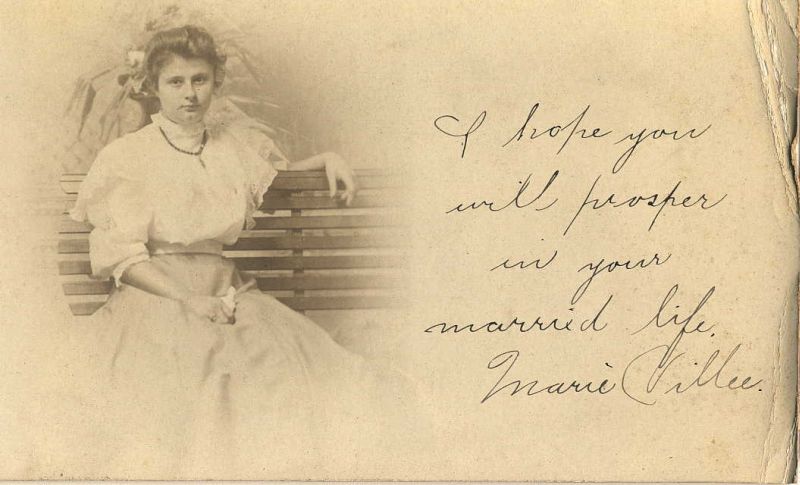 I hope you
will prosper
in your
married life.
Marie Villee.